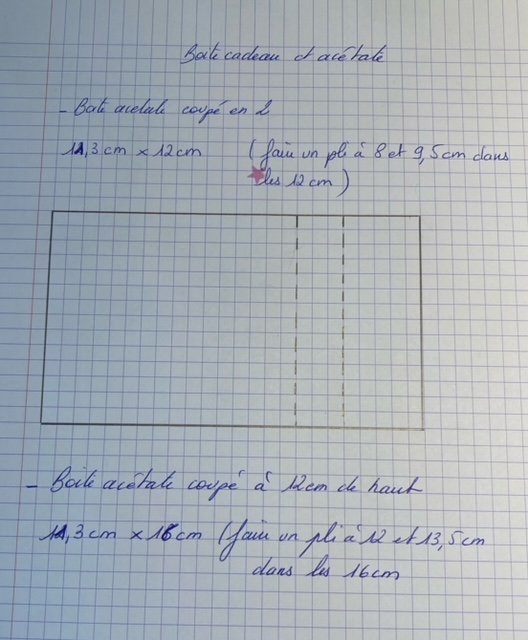 Boite cadeau et acétate
- Boite acetate coupé en 2
11,3 cm x 12 cm (faire un pli à 8 et 9,5 cm dans
les 12 cm)
- Boite acétate coupé à 12 cm de haut
11,3 cm x 16 cm (faire un pli à 12 et 13,5 cm
dans les 16 cm